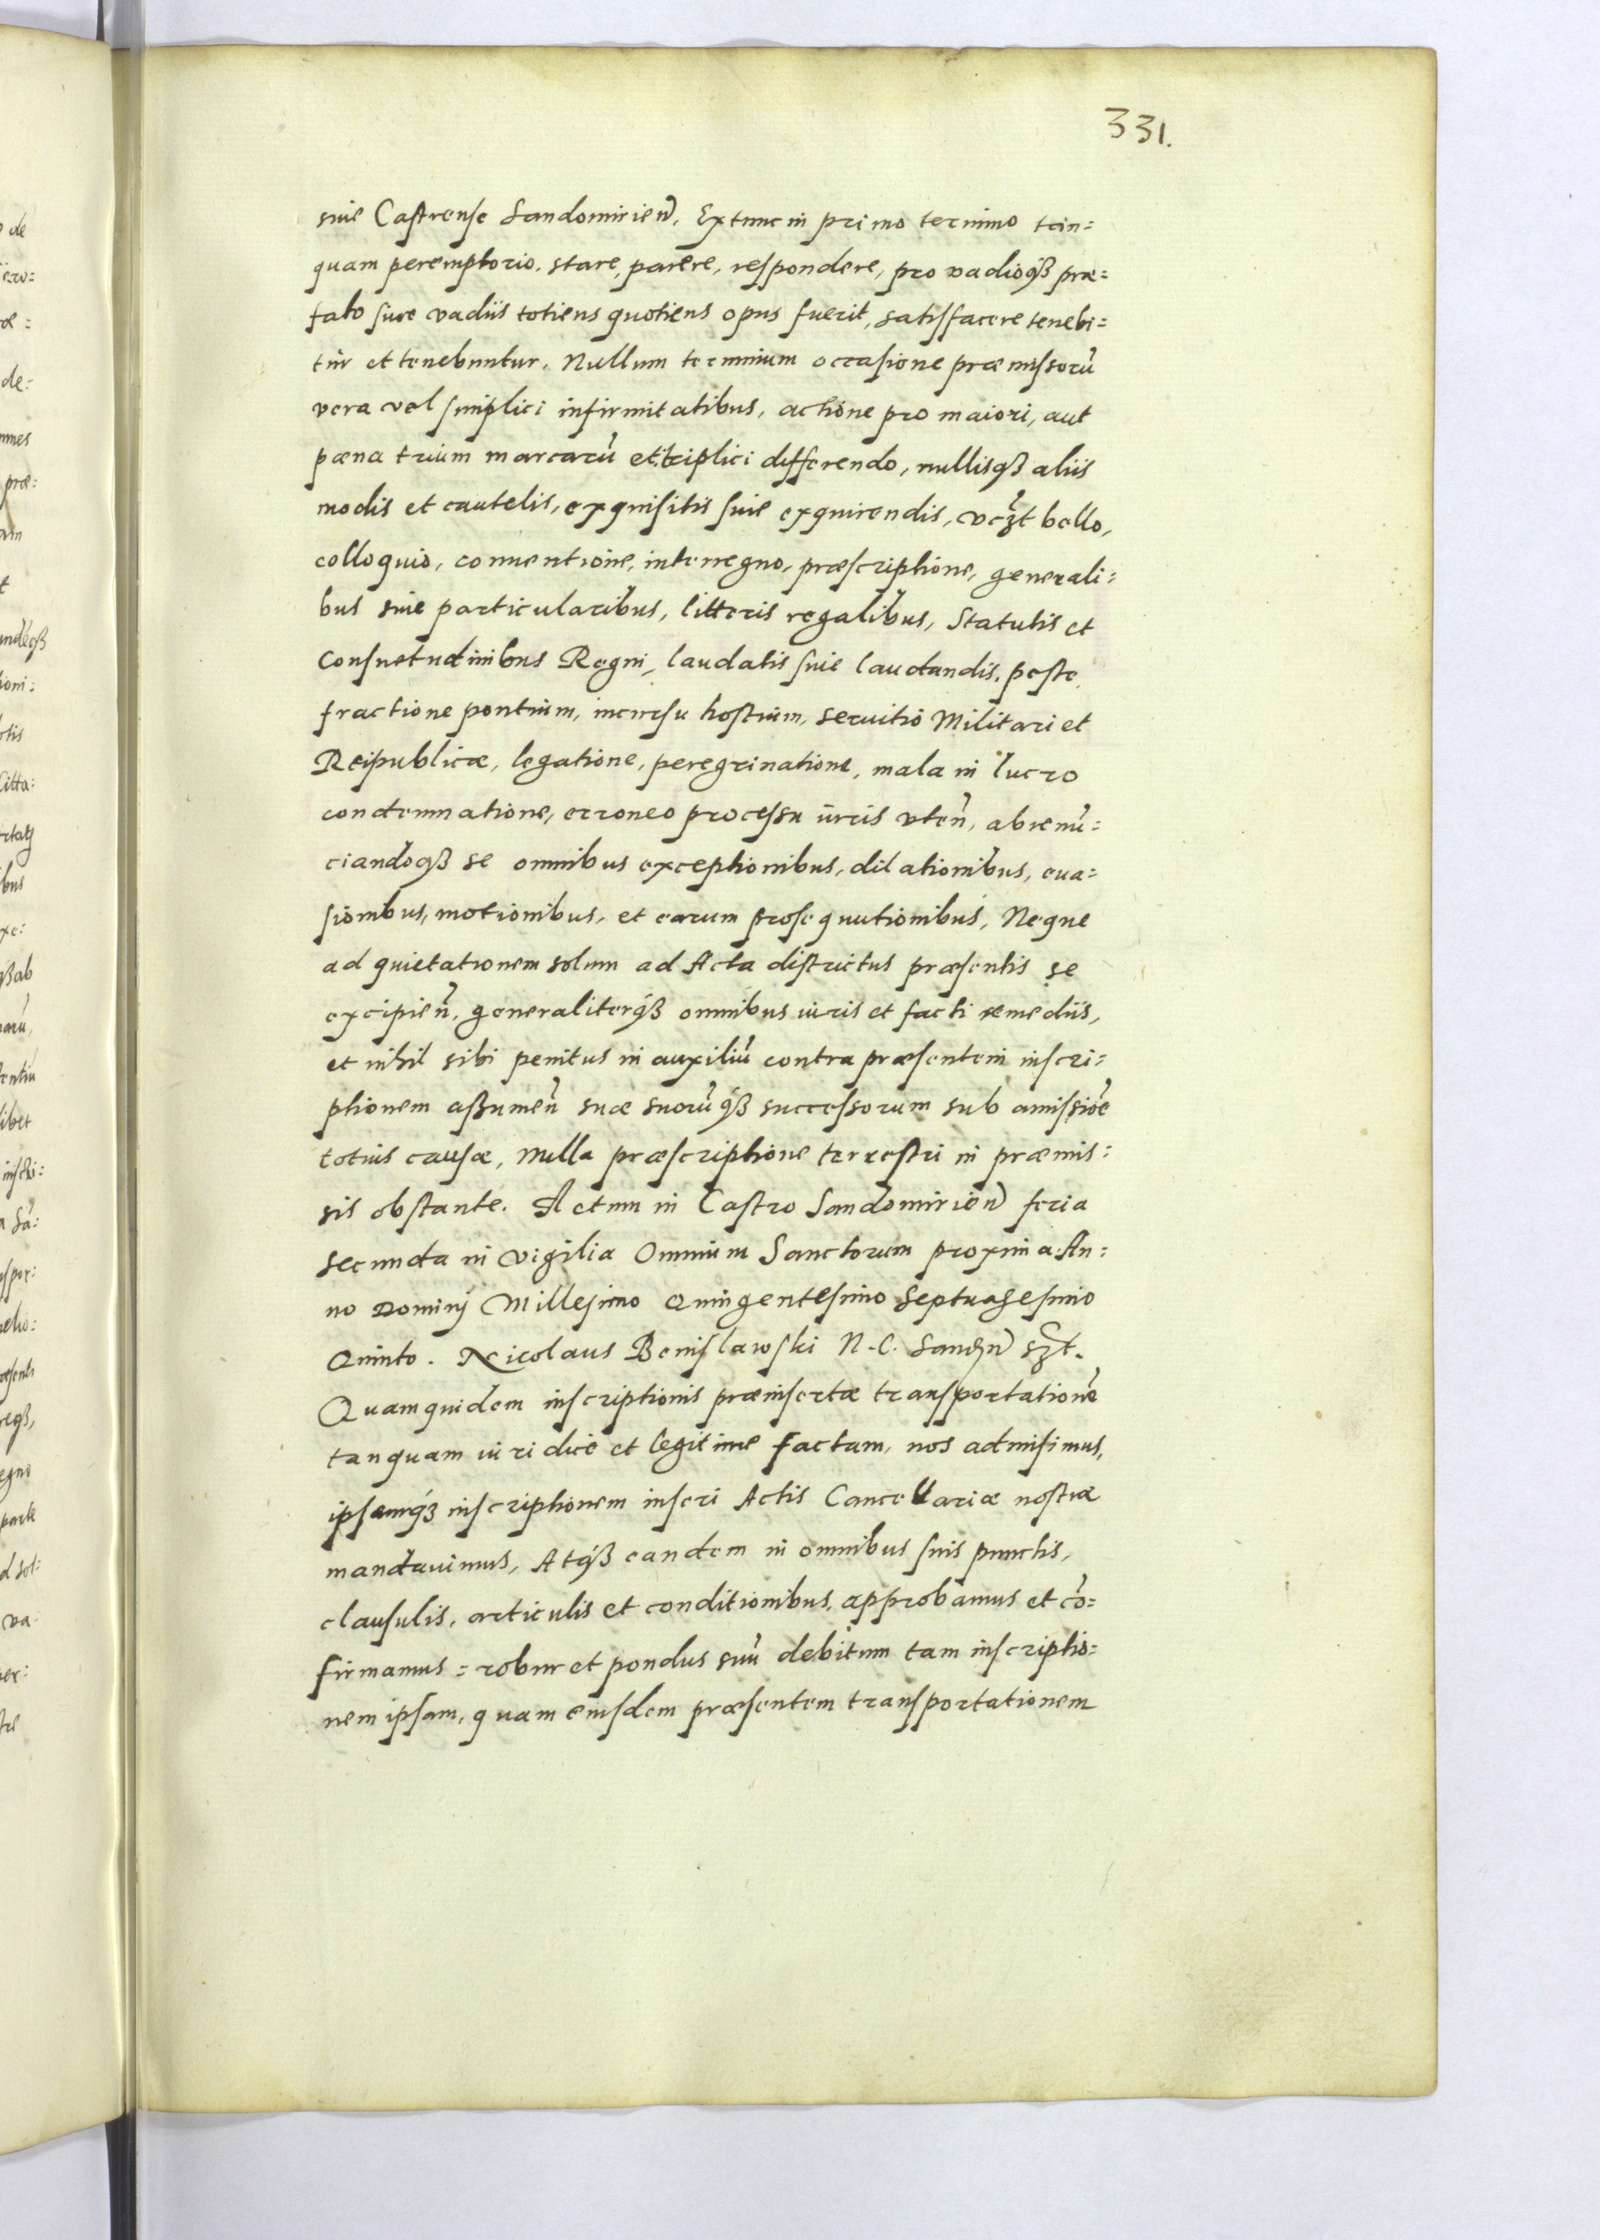 331.
siue Castrense Sandomirien̄. Extunc in primo termino tan=
quam peremptorio, stare, parere, respondere, pro vadioqȝ præ=
fato siue vadiis totiens quotiens opus fuerit, satisfacere tenebi=
tur et tenebuntur. Nullum terminum occasione præmissorū
vera vel simplici infirmitatibus, actione pro maiori, aut
pæna trium marcarū et triplici differendo, nullisqȝ aliis
modis et cautelis, exquisitis siue exquirendis, vcȝt bello,
colloquio, conuentione, interregno, præscriptione, generali=
bus siue particularibus, litteris regalibus, Statutis et
Consuetudinibus Regni, laudatis siue laudandis, peste,
fractione pontium, incursu hostium, seruitio Militari et
Reipublicæ, legatione, peregrinatione, mala in lucro
condemnatione, erroneo processu iuris vten̄, abrenū=
ciandoqȝ se omnibus exceptionibus, dilationibus, eua=
sionibus, motionibus, et earum prosequutionibus, Neque
ad quietationem solum ad Acta districtus præsentis se
excipien̄, generaliterqȝ omnibus iuris et facti remediis,
et nihil sibi penitus in auxiliū contra præsentem inscri=
ptionem assumen̄ suæ suorūqȝ successorum sub amissiōe
totius causæ, nulla præscriptione terrestri in præmis=
sis obstante. Actum in Castro Sandomirien̄ feria
secunda in vigilia Omnium Sanctorum proxima. An=
no Dominj Millesimo Quingentesimo Septuagesimo
Quinto. Nicolaus Benislawski N. C. Sandn̄ sȝt.
Quamquidem inscriptionis præinsertæ transportationē
tanquam iuridice et legitime factam, nos admisimus,
ipsamqȝ inscriptionem inseri Actis Cancellariæ nostræ
mandauimus, Atqȝ eandem in omnibus suis punctis,
clausulis, articulis et conditionibus, approbamus et cō=
firmamus = robur et pondus suū debitum tam inscriptio=
nem ipsam, quam eiusdem præsentem transportationem